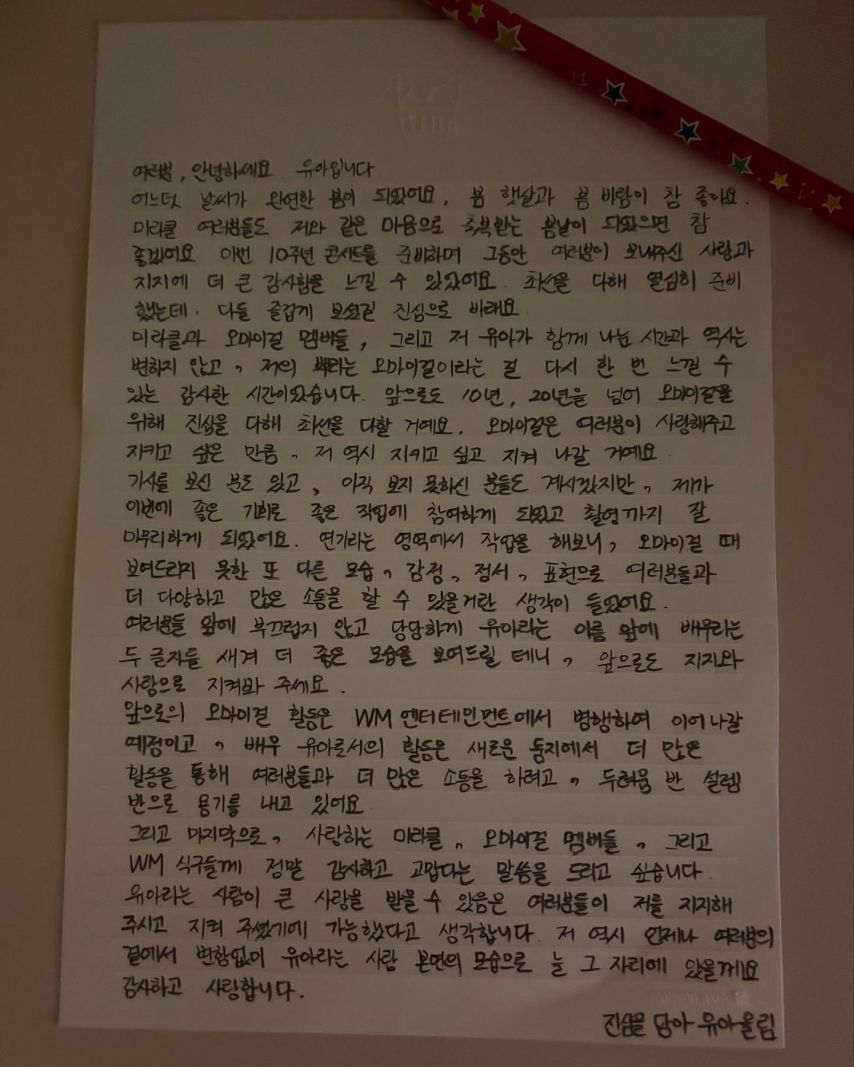 여러분, 안녕하세요 유아입니다
어느덧 날씨가 완연한 봄이 되었어요. 봄 햇살과 봄 바람이 참 좋아요.
미라클 여러분들도 저와 같은 마음으로 축복받는 봄날이 되었으면 참
좋겠어요 이번 10주년 콘서트를 준비하며 그동안 여러분이 보내주신 사랑과
지지에 더 큰 감사함을 느낄 수 있었어요. 최선을 다해 열심히 준비
했는데. 다들 즐겁게 보셨길 진심으로 바래요.
미라클과 오마이걸 멤버들, 그리고 저 유아가 함께 나눈 시간과 역사는
변하지 않고, 저의 뿌리는 오마이걸이라는 걸 다시 한 번 느낄 수
있는 감사한 시간이었습니다. 앞으로도 10년, 20년을 넘어 오마이걸을
위해 진심을 다해 최선을 다할 거예요. 오마이걸은 여러분이 사랑해주고
지키고 싶은 만큼, 저 역시 지키고 싶고 지켜 나갈 거예요
기사를 보신 분도 있고, 아직 보지 못하신 분들도 계시겠지만, 제가
이번에 좋은 기회로 좋은 작업에 참여하게 되었고 촬영까지 잘
마무리하게 되었어요. 연기라는 영역에서 작업을 해보니, 오마이걸 때
보여드리지 못한 또 다른 모습, 감정, 정서, 표현으로 여러분들과
더 다양하고 많은 소통을 할 수 있을거란 생각이 들었어요.
여러분들 앞에 부끄럽지 않고 당당하게 유아라는 이름 앞에 배우라는
두 글자를 새겨 더 좋은 모습을 보여드릴 테니, 앞으로도 지지와
사랑으로 지켜봐 주세요.
앞으로의 오마이걸 활동은 WM엔터테인먼트에서 병행하여 이어나갈
예정이고, 배우 유아로서의 활동은 새로운 둥지에서 더 많은
활동을 통해 여러분들과 더 많은 소통을 하려고, 두려움 반 설렘
반으로 용기를 내고 있어요.
그리고 마지막으로, 사랑하는 미라클, 오마이걸 멤버들, 그리고
WM 식구들께 정말 감사하고 고맙다는 말씀을 드리고 싶습니다.
유아라는 사람이 큰 사랑을 받을 수 있음은 여러분들이 저를 지지해
주시고 지켜 주셨기에 가능했다고 생각합니다. 저 역시 언제나 여러분의
곁에서 변함없이 유아라는 사람 본연의 모습으로 늘 그 자리에 있을게요
감사하고 사랑합니다.
진심을 담아 유아올림